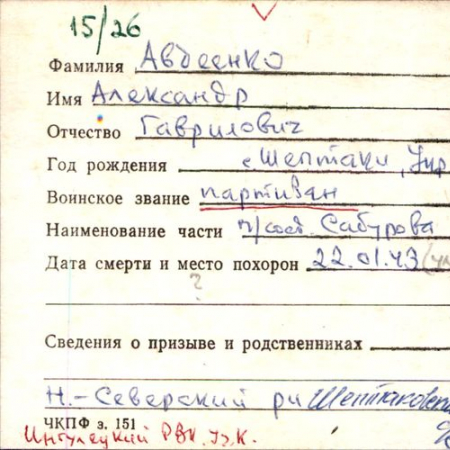 15/26
Фамилия Авдеенко
Имя Александр
Отчество Гаврилович
Год рождения с. Шептаки,
Воинское звание партизан
Наименование части п/соед. Сабурова
Дата смерти и место похорон 22.01.43
?
Сведения о призыве и родственниках
Н.-Северский р-н
ЧКПФ з. 151
Ингулецкий РВК,